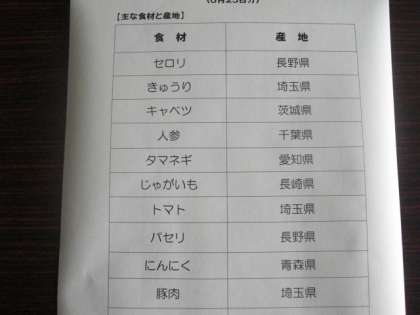 【主な食材と産地】
食 材 産 地
セロリ 長野県
きゅうり 埼玉県
キャベツ 茨城県
人参 千葉県
タマネギ 愛知県
じゃがいも 長崎県
トマト 埼玉県
パセリ 長野県
にんにく 青森県
豚肉 埼玉県